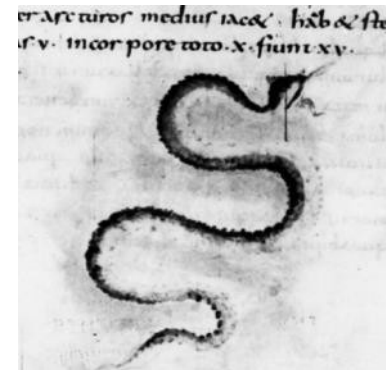 er arcturos medius iacet. hab& ste
as v. in corpore toto .x. fiunt xv.